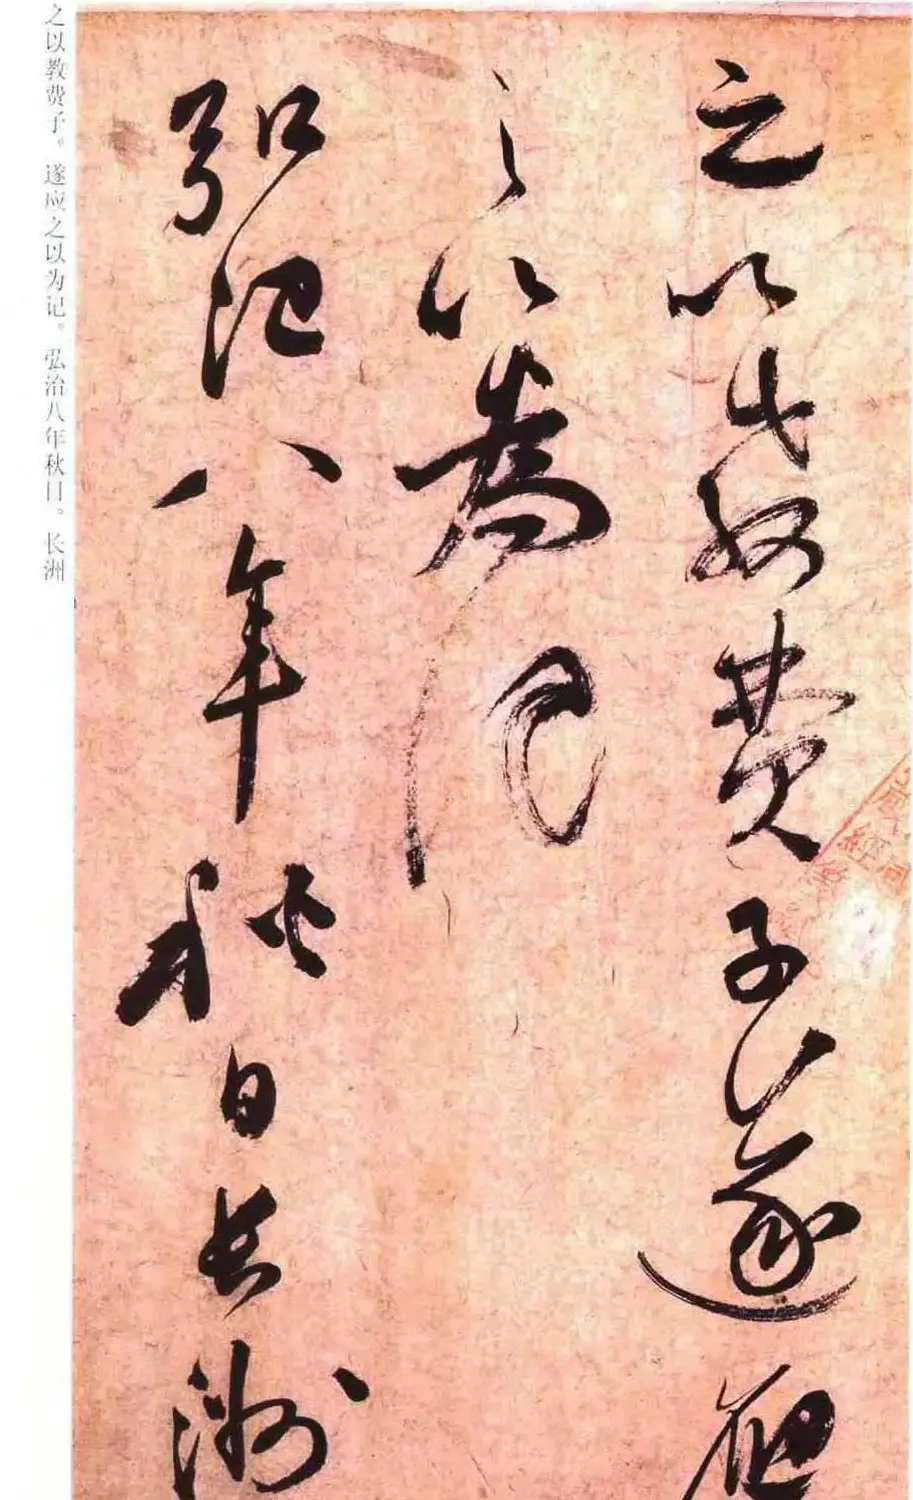 之以教費子遂應
之以為記
弘治八年秋日長洲
之以教费子。遂应之以为记。弘治八年秋日。长洲